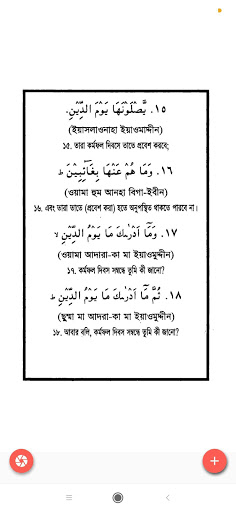 ١٥. يَّصْلَوْنَهَا يَوْمَ الدِّيْنِ.
(ইয়াসলাওনাহা ইয়াওমাদ্দীন)
১৫. তারা কর্মফল দিবসে তাতে প্রবেশ করবে;
١٦. وَمَا هُمْ عَنْهَا بِغَآئِبِيْنَ ط
(ওয়ামা হুম আনহা বিগা-ইবীন)
১৬. এবং তারা তাতে (প্রবেশ করা) হতে অনুপস্থিত থাকতে পারবে না।
١٧. وَمَآ اَدْرٰىكَ مَا يَوْمُ الدِّيْنِ لا
(ওয়ামা আদারা-কা মা ইয়াওমুদ্দীন)
১৭. কর্মফল দিবস সম্বন্ধে তুমি কী জানো?
١٨. ثُمَّ مَآ اَدْرٰىكَ مَا يَوْمُ الدِّيْنِ ط
(ছুম্মা মা আদরা-কা মা ইয়াওমুদ্দীন)
১৮. আবার বলি, কর্মফল দিবস সম্বন্ধে তুমি কী জানো?